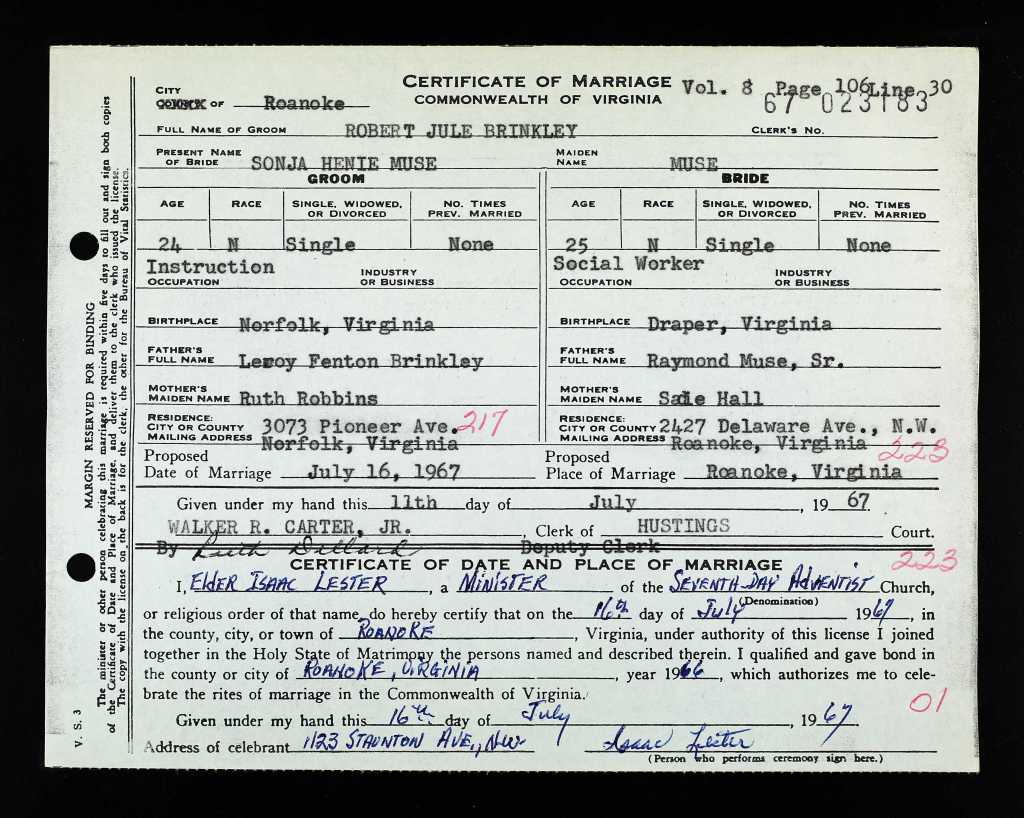 CERTIFICATE OF MARRIAGE Vol. 8 Page 106 Line 30
COMMONWEALTH OF VIRGINIA 67 023183
CITY
COUNTY OF Roanoke
FULL NAME OF GROOM ROBERT JULE BRINKLEY CLERK'S NO.
PRESENT NAME OF BRIDE SONJA HENIE MUSE MAIDEN NAME MUSE
GROOM BRIDE
AGE RACE SINGLE, WIDOWED, OR DIVORCED NO. TIMES PREV. MARRIED AGE RACE SINGLE, WIDOWED, OR DIVORCED NO. TIMES PREV. MARRIED
24 N Single None 25 N Single None
Instruction Social Worker
OCCUPATION INDUSTRY OR BUSINESS OCCUPATION INDUSTRY OR BUSINESS
BIRTHPLACE Norfolk, Virginia BIRTHPLACE Draper, Virginia
FATHER'S FULL NAME Leroy Fenton Brinkley FATHER'S FULL NAME Raymond Muse, Sr.
MOTHER'S MAIDEN NAME Ruth Robbins MOTHER'S MAIDEN NAME Sadie Hall
RESIDENCE: CITY OR COUNTY MAILING ADDRESS 3073 Pioneer Ave. 217 RESIDENCE: CITY OR COUNTY MAILING ADDRESS 2427 Delaware Ave., N.W.
Norfolk, Virginia Roanoke, Virginia 223
Proposed Date of Marriage July 16, 1967 Proposed Place of Marriage Roanoke, Virginia
Given under my hand this 11th day of July, 1967
WALKER R. CARTER, JR., Clerk of HUSTINGS Court.
By Ruth Dillard Deputy Clerk
CERTIFICATE OF DATE AND PLACE OF MARRIAGE 223
I, ELDER ISAAC LESTER, a MINISTER of the SEVENTH-DAY ADVENTIST Church,
(Denomination)
or religious order of that name, do hereby certify that on the 16th day of July 1967, in
the county, city, or town of ROANOKE, Virginia, under authority of this license I joined
together in the Holy State of Matrimony the persons named and described therein. I qualified and gave bond in
the county or city of ROANOKE, VIRGINIA, year 1966, which authorizes me to cele-
brate the rites of marriage in the Commonwealth of Virginia.
01
Given under my hand this 16th day of July, 1967
Address of celebrant 1123 STAUNTON AVE., NW Isaac Lester
(Person who performs ceremony sign here.)
MARGIN RESERVED FOR BINDING
The minister or other person celebrating this marriage is required within five days to fill out and sign both copies
of the Certificate of Date and Place of Marriage, and deliver them to the clerk who issued the license.
The copy with the license on the back is for the clerk, the other for the Bureau of Vital Statistics.
V. S. 3